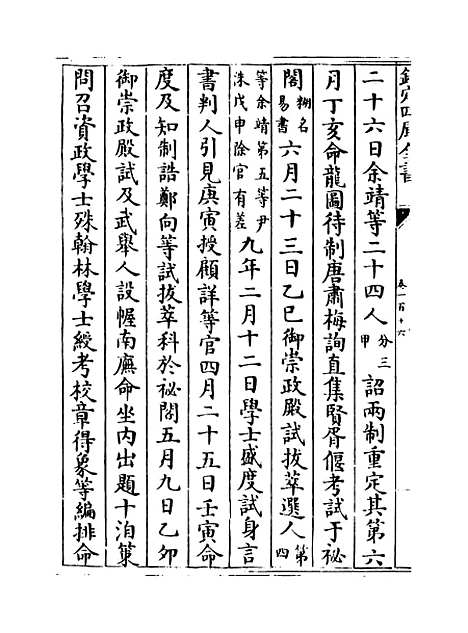 欽定四庫全書
卷一百十六
二十六日余靖等二十四人分三甲詔兩制重定其第六
月丁亥命龍圖待制唐肅梅詢直集賢胥偃考試于祕
閣糊名易書六月二十三日乙巳御崇政殿試拔萃選人第四
等余靖第五等尹洙戊申除官有差九年二月十二日學士盛度試身言
書判人引見庚寅授顧詳等官四月二十五日壬寅命
度及知制誥鄭向等試拔萃科於祕閣五月九日乙卯
御崇政殿試及武舉人設幄南廡命坐内出題十洎策
問召資政學士殊翰林學士綬考校章得象等編排命